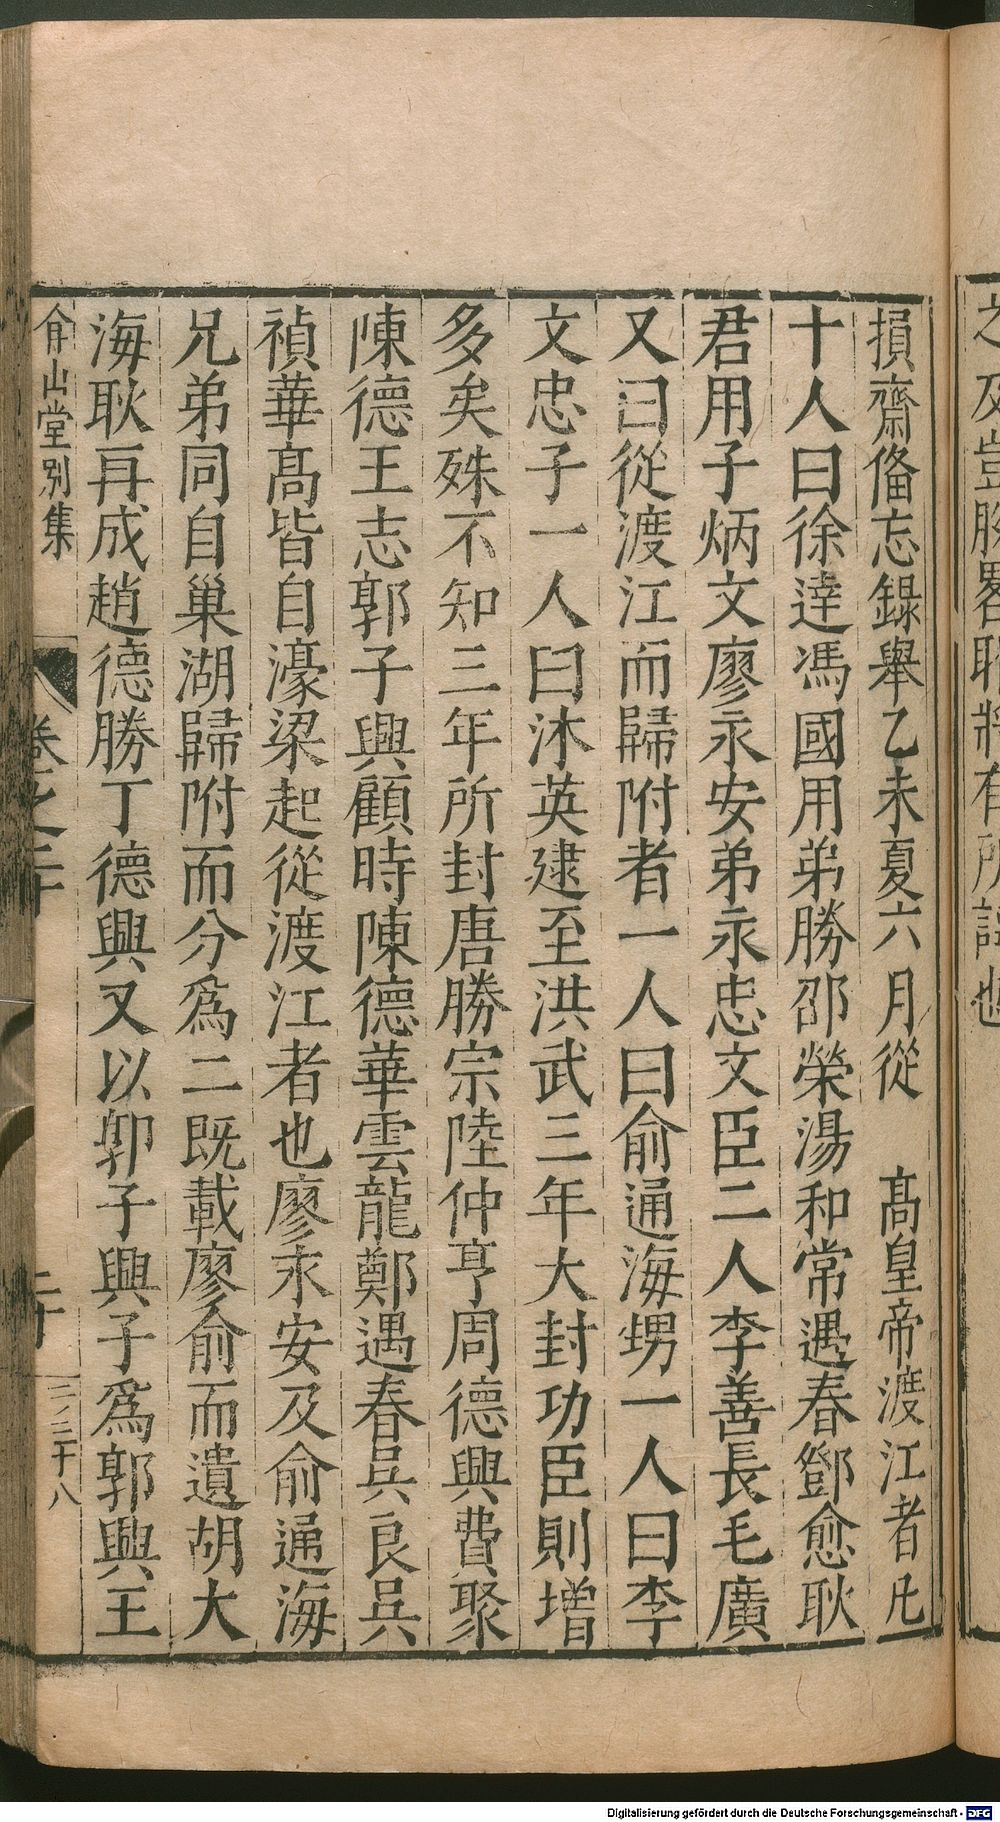 之及豈胸畧耶將有所諱也
損齋俻忘錄舉乙未夏六月從　髙皇帝渡江者凡
十人曰徐逹馮國用弟勝邵榮湯和常遇春鄧愈耿
君用子炳文廖永安弟永忠文臣二人李善長毛廣
又曰從渡江而歸附者一人曰俞通海甥一人曰李
文忠子一人曰沐英建至洪武三年大封功臣則增
多矣殊不知三年所封唐勝宗陸仲亨周德興費聚
陳德王志郭子興顧時陳德華雲龍鄭遇春吳良吳
禎華髙皆自濠梁起從渡江者也廖永安及俞通海
兄弟同自巢湖歸附而分爲二既載廖俞而遺胡大
海耿再成趙德勝丁德興又以郭子興子爲郭興王
弇山堂别集
卷之二十
二十
三ノ三十八
Digitalisierung gefördert durch die Deutsche Forschungsgemeinschaft - DFG